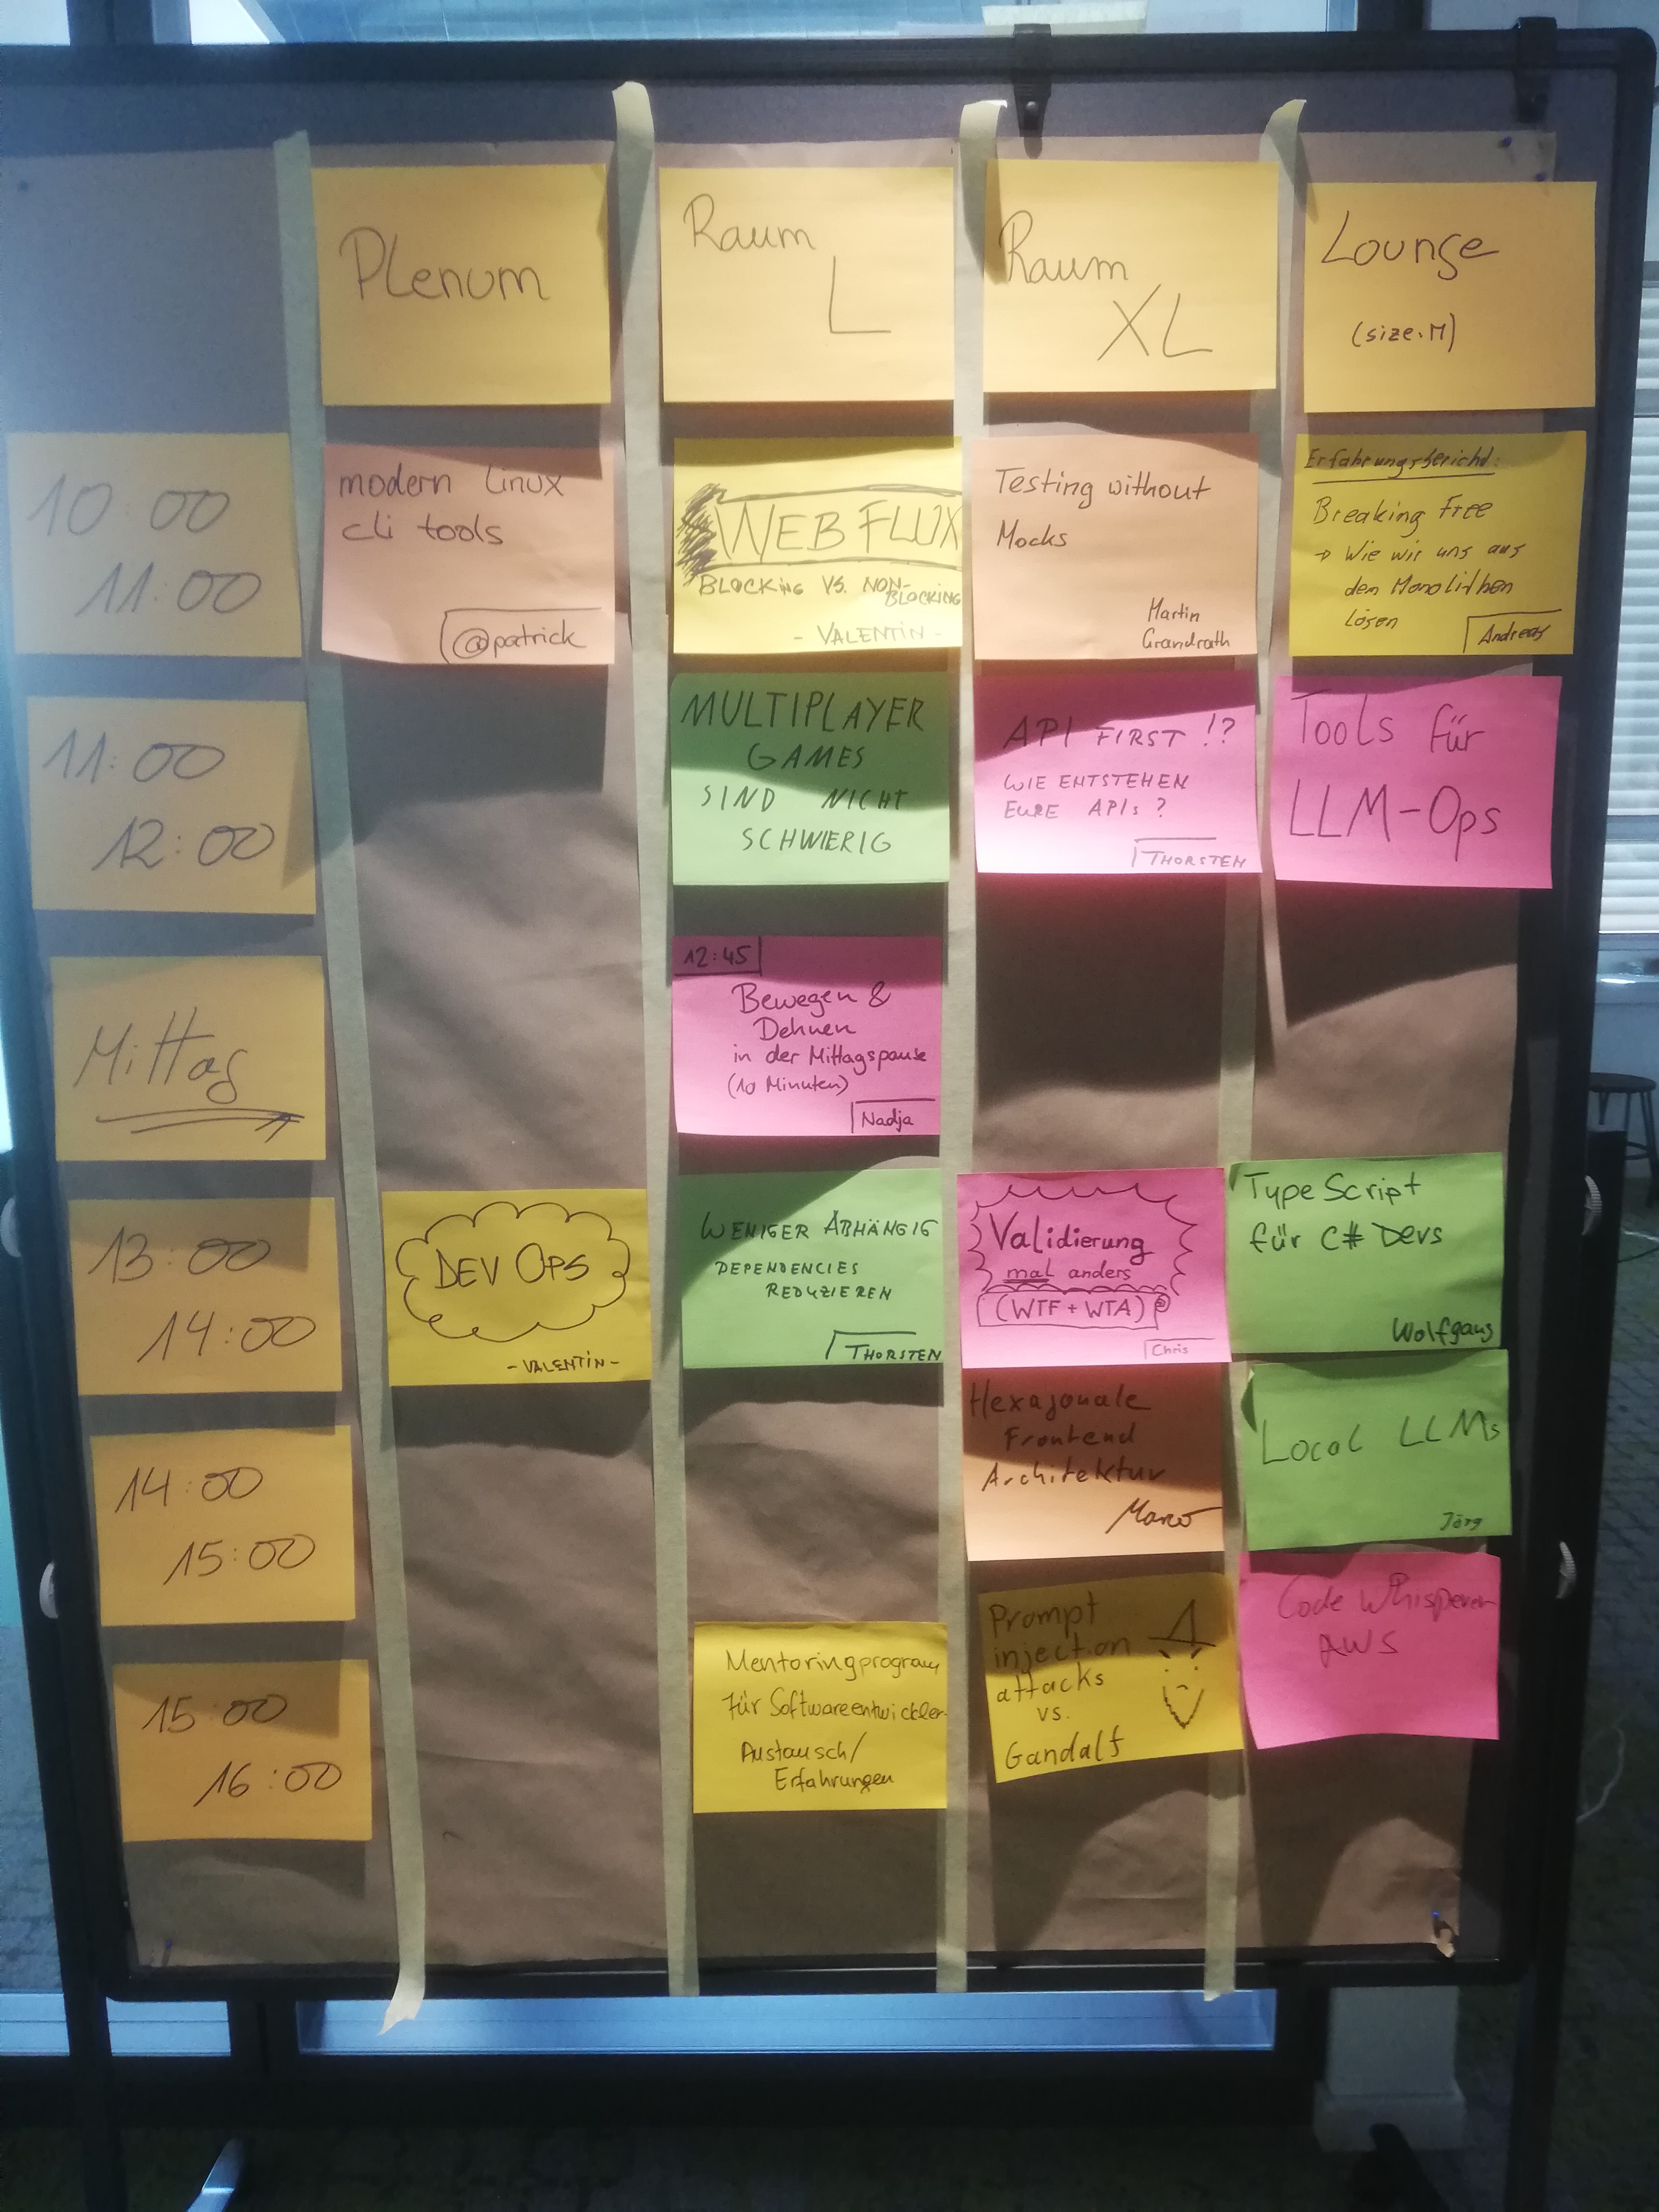 Plenum
Raum
L
Raum
XL
Lounge
(size:M)
10:00
11:00
modern Linux
cli tools
@patrick
WEBFLUX
BLOCKING VS. NON-
BLOCKING
- VALENTIN -
Testing without
Mocks
Martin
Grandrath
Erfahrungsbericht:
Breaking Free
→ Wie wir uns aus
dem Monolithen
lösen
Andreas
11:00
12:00
MULTIPLAYER
GAMES
SIND NICHT
SCHWIERIG
API FIRST !?
WIE ENTSTEHEN
EURE APIs ?
THORSTEN
Tools für
LLM-Ops
Mittag
12:45
Bewegen &
Dehnen
in der Mittagspause
(10 Minuten)
Nadja
13:00
14:00
DEV OPS
- VALENTIN -
WENIGER ABHÄNGIG
DEPENDENCIES
REDUZIEREN
THORSTEN
Validierung
mal anders
(WTF + WTA)
Chris
TypeScript
für C# Devs
Wolfgang
14:00
15:00
Hexagonale
Frontend
Architektur
Marco
Local LLMs
Jörg
15:00
16:00
Mentoringprogram
für Softwareentwickler
Austausch/
Erfahrungen
Prompt
injection
attacks
vs.
Gandalf
Code Whisperer
AWS